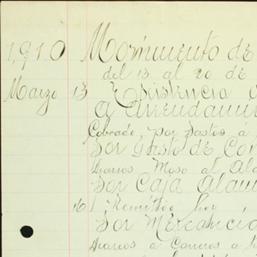 1910 Movimiento de
del 13 al 20 de
Marzo 13 Existencia
a Arrendami
Cobrado, por Pastos a
Por Gasto de Con
Diarios Mozo al Ala
Por Caja Alam
16 Remitido hoy
Por Mercancía
Diarios a Carreros a